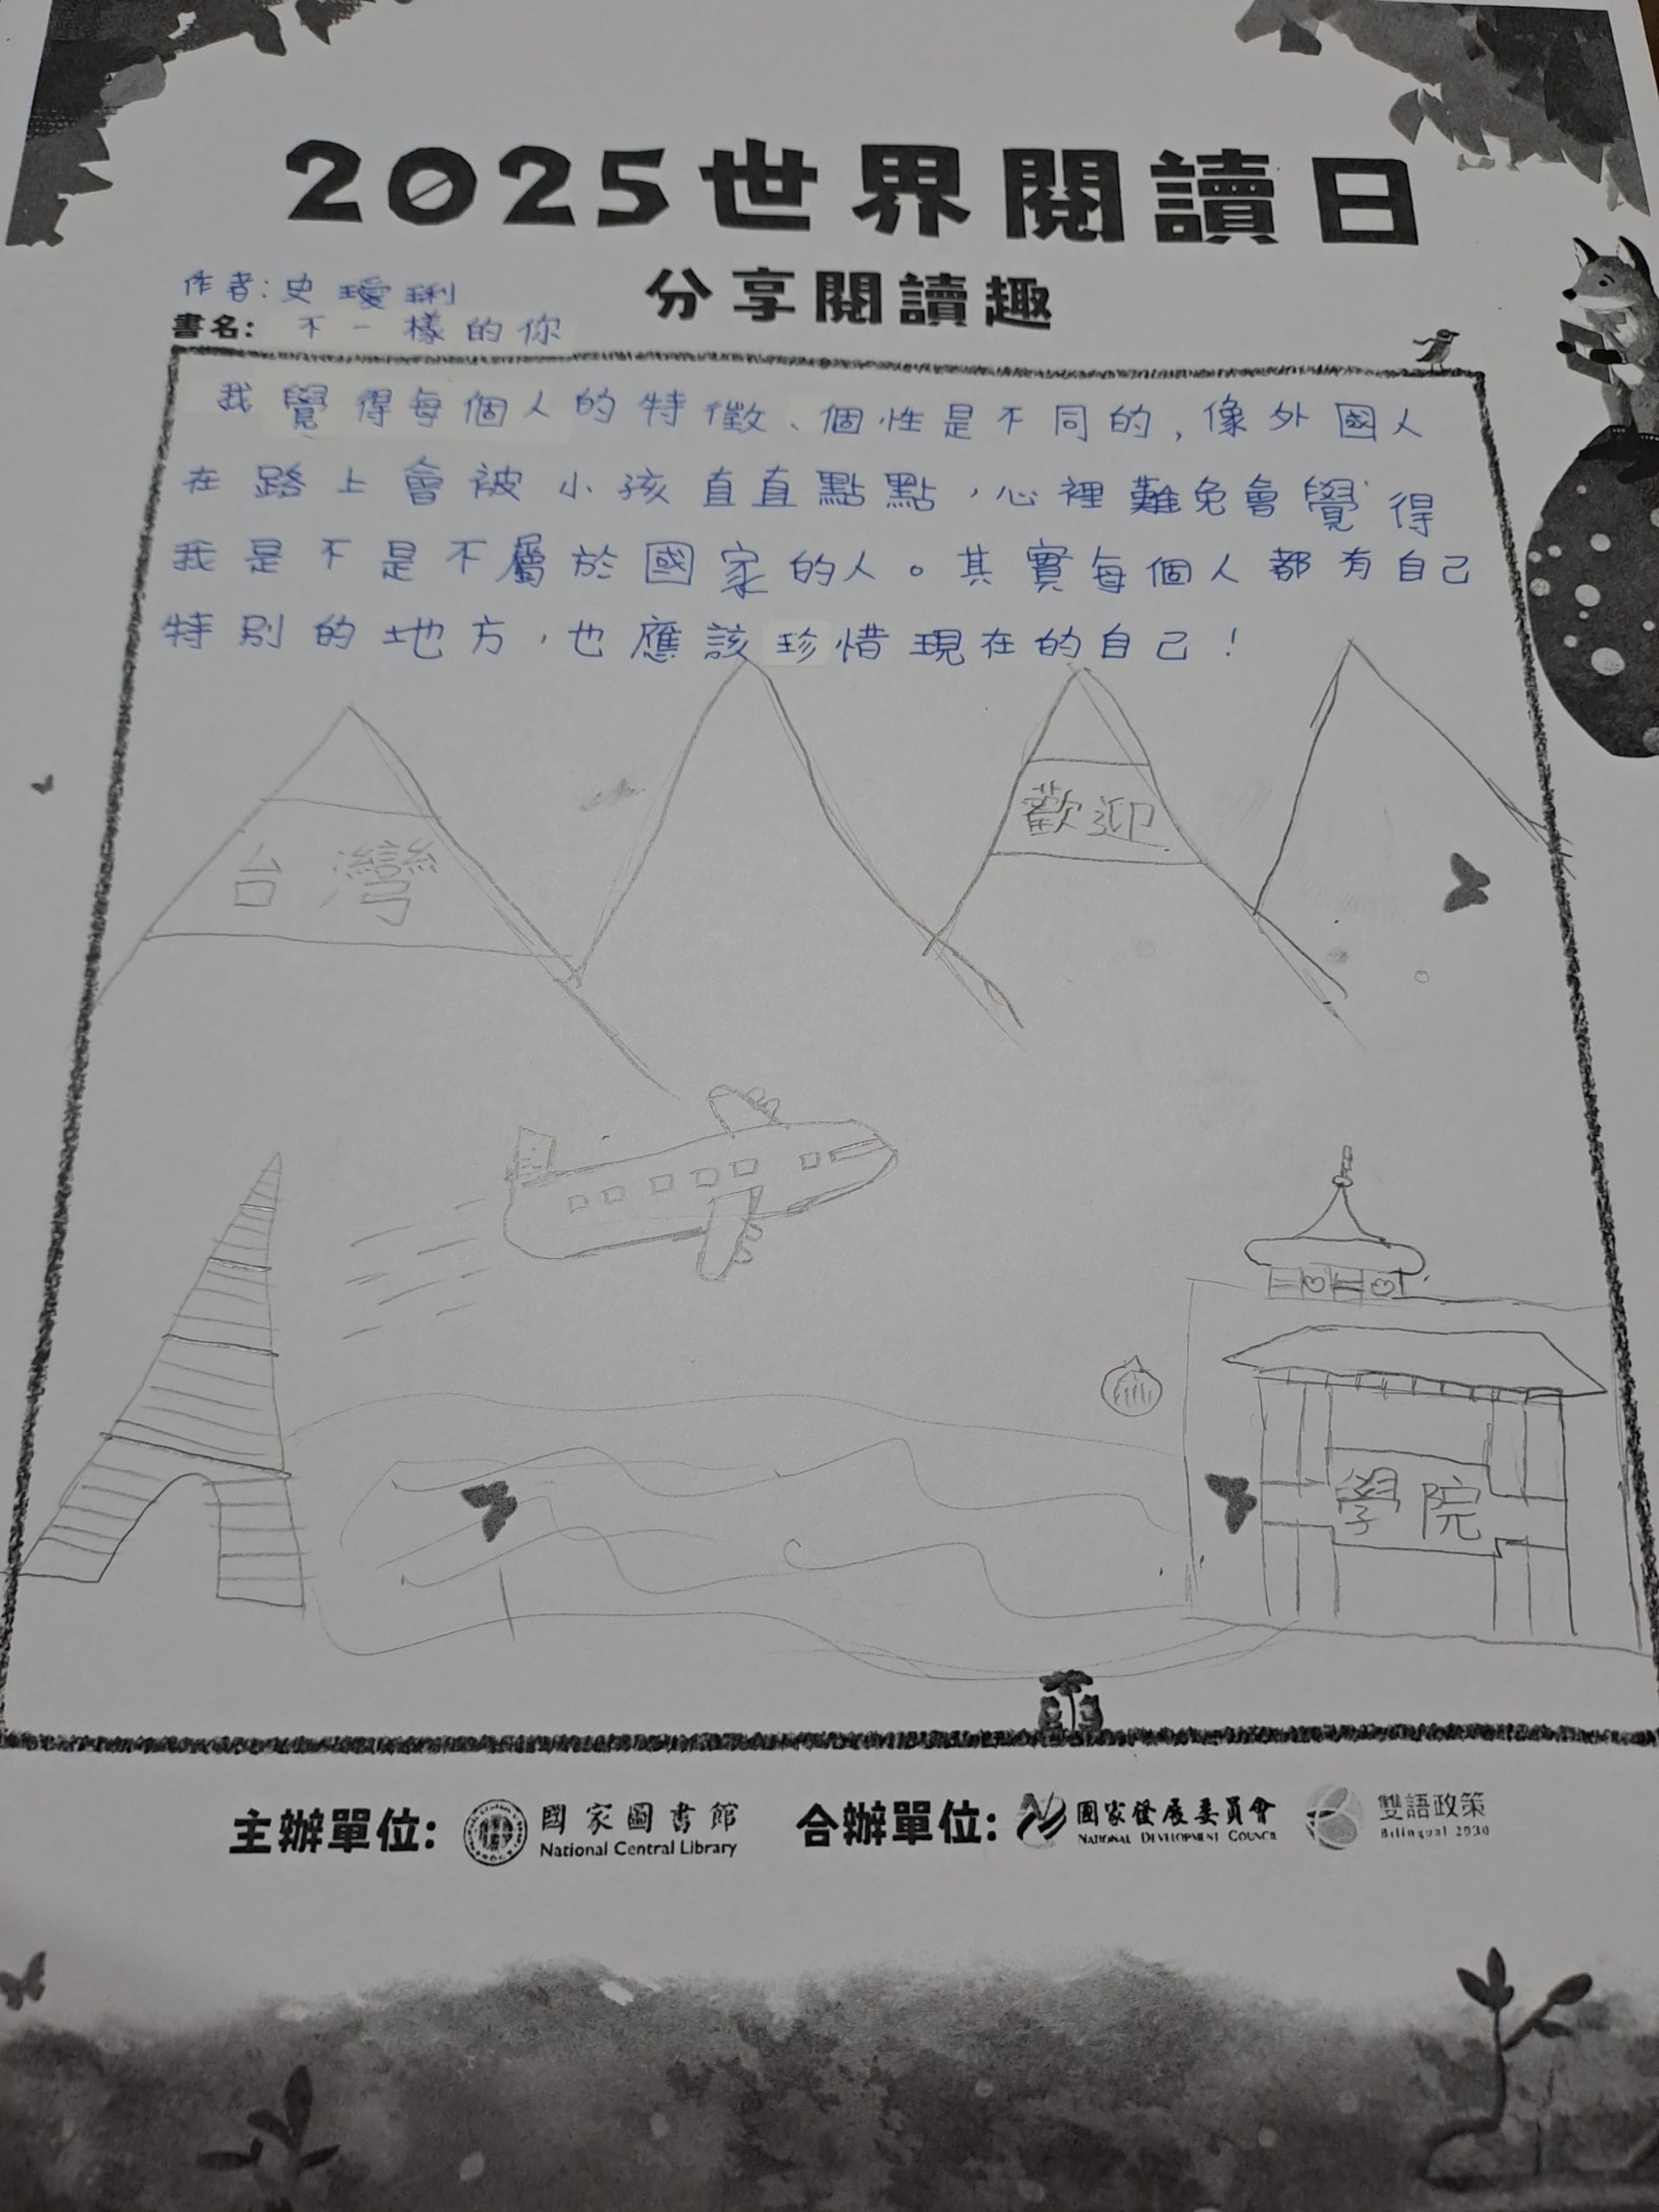 2025世界閱讀日
分享閱讀趣
作者:史瓊琍
書名: 不一樣的你
我覺得每個人的特徵、個性是不同的,像外國人
在路上會被小孩直直點點,心裡難免會覺得
我是不是不屬於國家的人。其實每個人都有自己
特別的地方,也應該珍惜現在的自己!
台灣
歡迎
學院
主辦單位: 國家圖書館 合辦單位: 國家發展委員會 雙語政策
National Central Library NATIONAL DEVELOPMENT COUNCIL Bilingual 2030